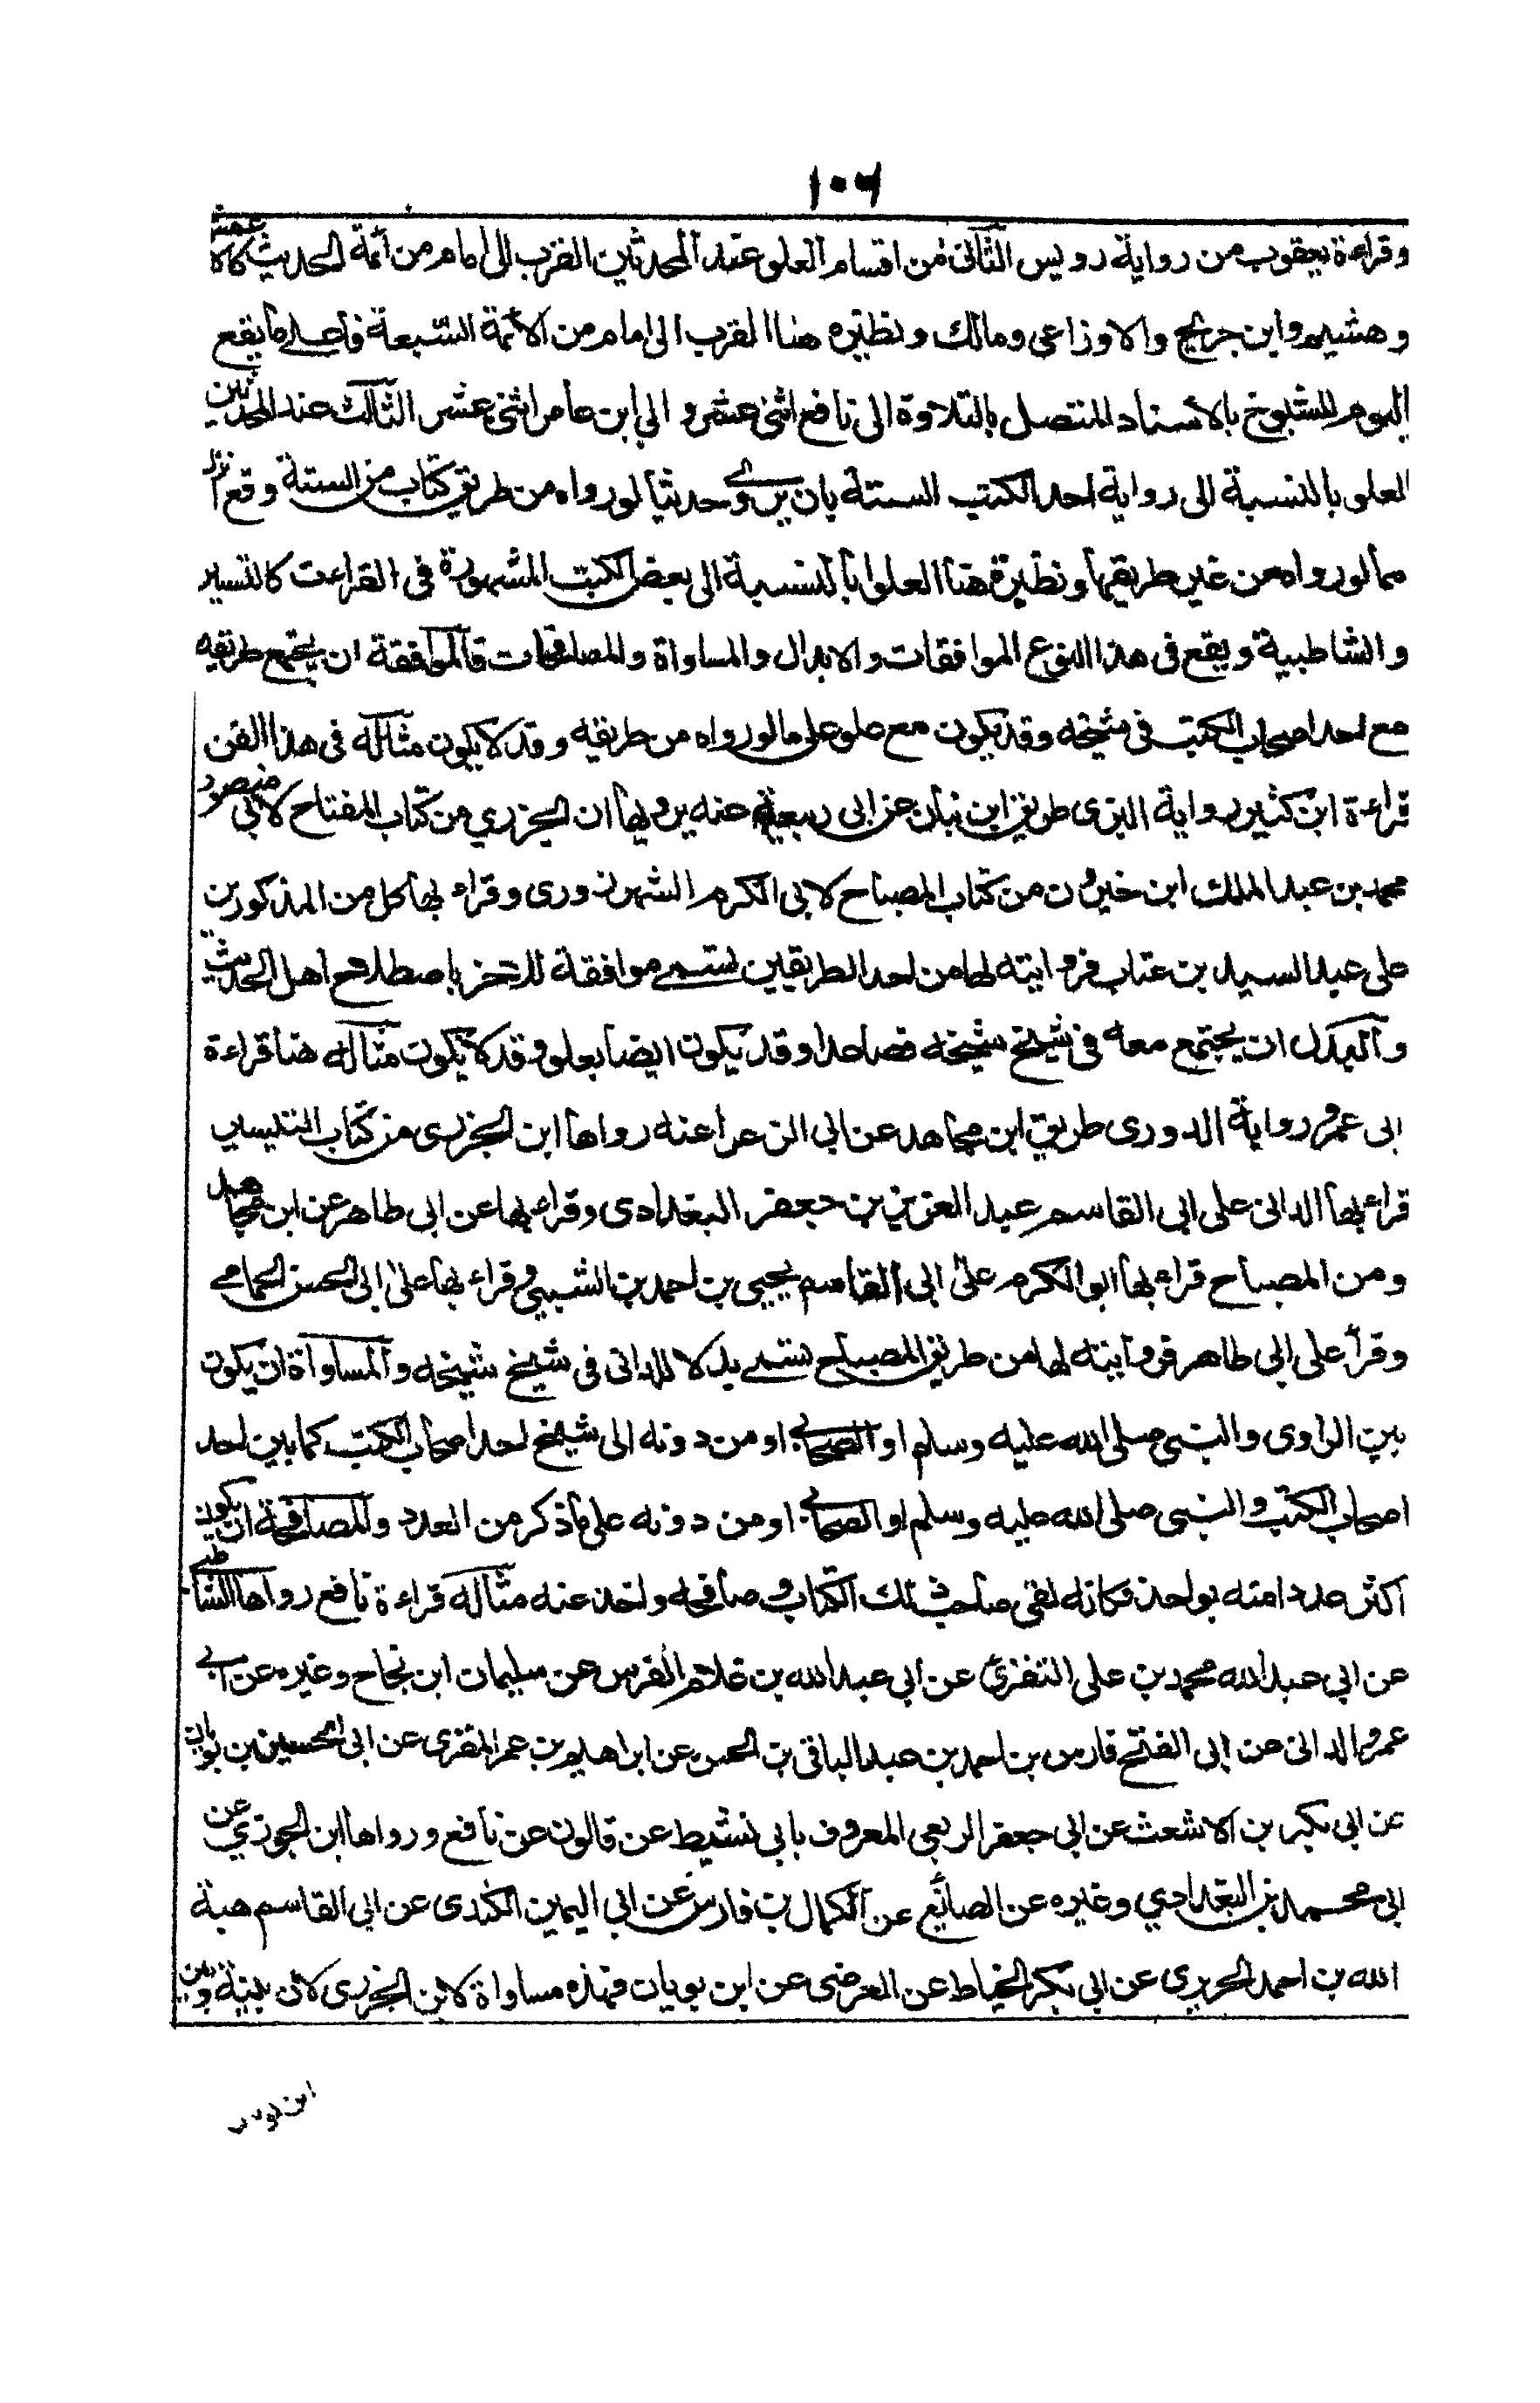 ١٠٦
وقراءة يعقوب من رواية رويس الثاني من اقسام العلو عند المحدثين القرب الى امام من ائمة الحديث كالاعمش
وهشيم وابن جريج والاوزاعي ومالك ونظيره هنا القرب الى امام من الائمة السبعة فاعلى ما يقع
اليوم للشيوخ بالاسناد المتصل بالتلاوة الى نافع اثنى عشر و الى ابن عامر اثنى عشر الثالث عند المحدثين
العلو بالنسبة الى رواية احد الكتب الستة بان يروى حديثا لو رواه من طريق كتاب من الستة وقع انزل
مما لو رواه من غير طريقها ونظيره هنا العلو بالنسبة الى بعض الكتب المشهورة في القراءت كالتيسير
والشاطبية ويقع في هذا النوع الموافقات والابدال والمساواة والمصافحات فالموافقة ان يجتمع طريقه
مع احد اصحاب الكتب في شيخه وقد يكون مع علو على ما لو رواه من طريقه وقد لا يكون مثاله في هذا الفن
قراءة ابن كثير رواية البزى طريق ابن بنان عن ابى ربيعة عنه يرويها ان الجزري من كتاب المفتاح لابي منصور
محمد بن عبد الملك ابن خيرون ومن كتاب المصباح لابى الكرم الشهرزورى وقراء بها كل من المذكورين
على عبد السيد بن عتاب فروايته لها من احد الطريقين تسمى موافقة للآخر باصطلاح اهل الحديث
والبدل ان يجتمع معه في شيخ شيخه فصاعدا وقد يكون ايضا بعلو وقد لا يكون مثاله هنا قراءة
ابى عمرو رواية الدورى طريق ابن مجاهد عن ابى الزعراء عنه رواها ابن الجزرى من كتاب التيسير
قراء بها الدانى على ابى القاسم عبد العزيز بن جعفر البغدادى وقراء بها عن ابى طاهر عن ابن مجاهد
ومن المصباح قراء بها ابو الكرم على ابى القاسم يحيى بن احمد بن الشيبي وقراء بها على ابى الحسن الحمامى
وقرأ على ابى طاهر فروايته لها من طريق المصباح تسمى بدلا للدانى فى شيخ شيخه والمساواة ان يكون
بين الراوى والنبى صلى الله عليه وسلم او الصحابى او من دونه الى شيخ احد اصحاب الكتب كما بين احد
اصحاب الكتب والنبى صلى الله عليه وسلم او الصحابى او من دونه على ما ذكر من العدد والمصافحة ان يكون
اكثر عددا منه بواحد فكانه لقى صاحب ذلك الكتاب وصافحه واخذ عنه مثاله قراءة نافع رواها الشاطبى
عن ابى عبد الله محمد بن على النفزي عن ابي عبد الله بن غلام الفرس عن سليمان ابن نجاح وغيره عن ابى
عمرو الدانى عن ابى الفتح فارس بن احمد بن عبد الباقى بن الحسن عن ابراهيم بن عمر المقرى عن ابى الحسين بن بويان
عن ابى بكر بن الاشعث عن ابى جعفر الربعى المعروف بابي نشيط عن قالون عن نافع ورواها ابن الجوزي عن
ابى محمد بن البغدادي وغيره عن الصائغ عن الكمال بن فارس عن ابى اليمين الكندى عن ابى القاسم هبة
الله بن احمد الحريرى عن ابى بكر الخياط عن الفرضى عن ابن بويان فهذه مساواة لابن الجزرى لان بينه وبين
ابن بويان